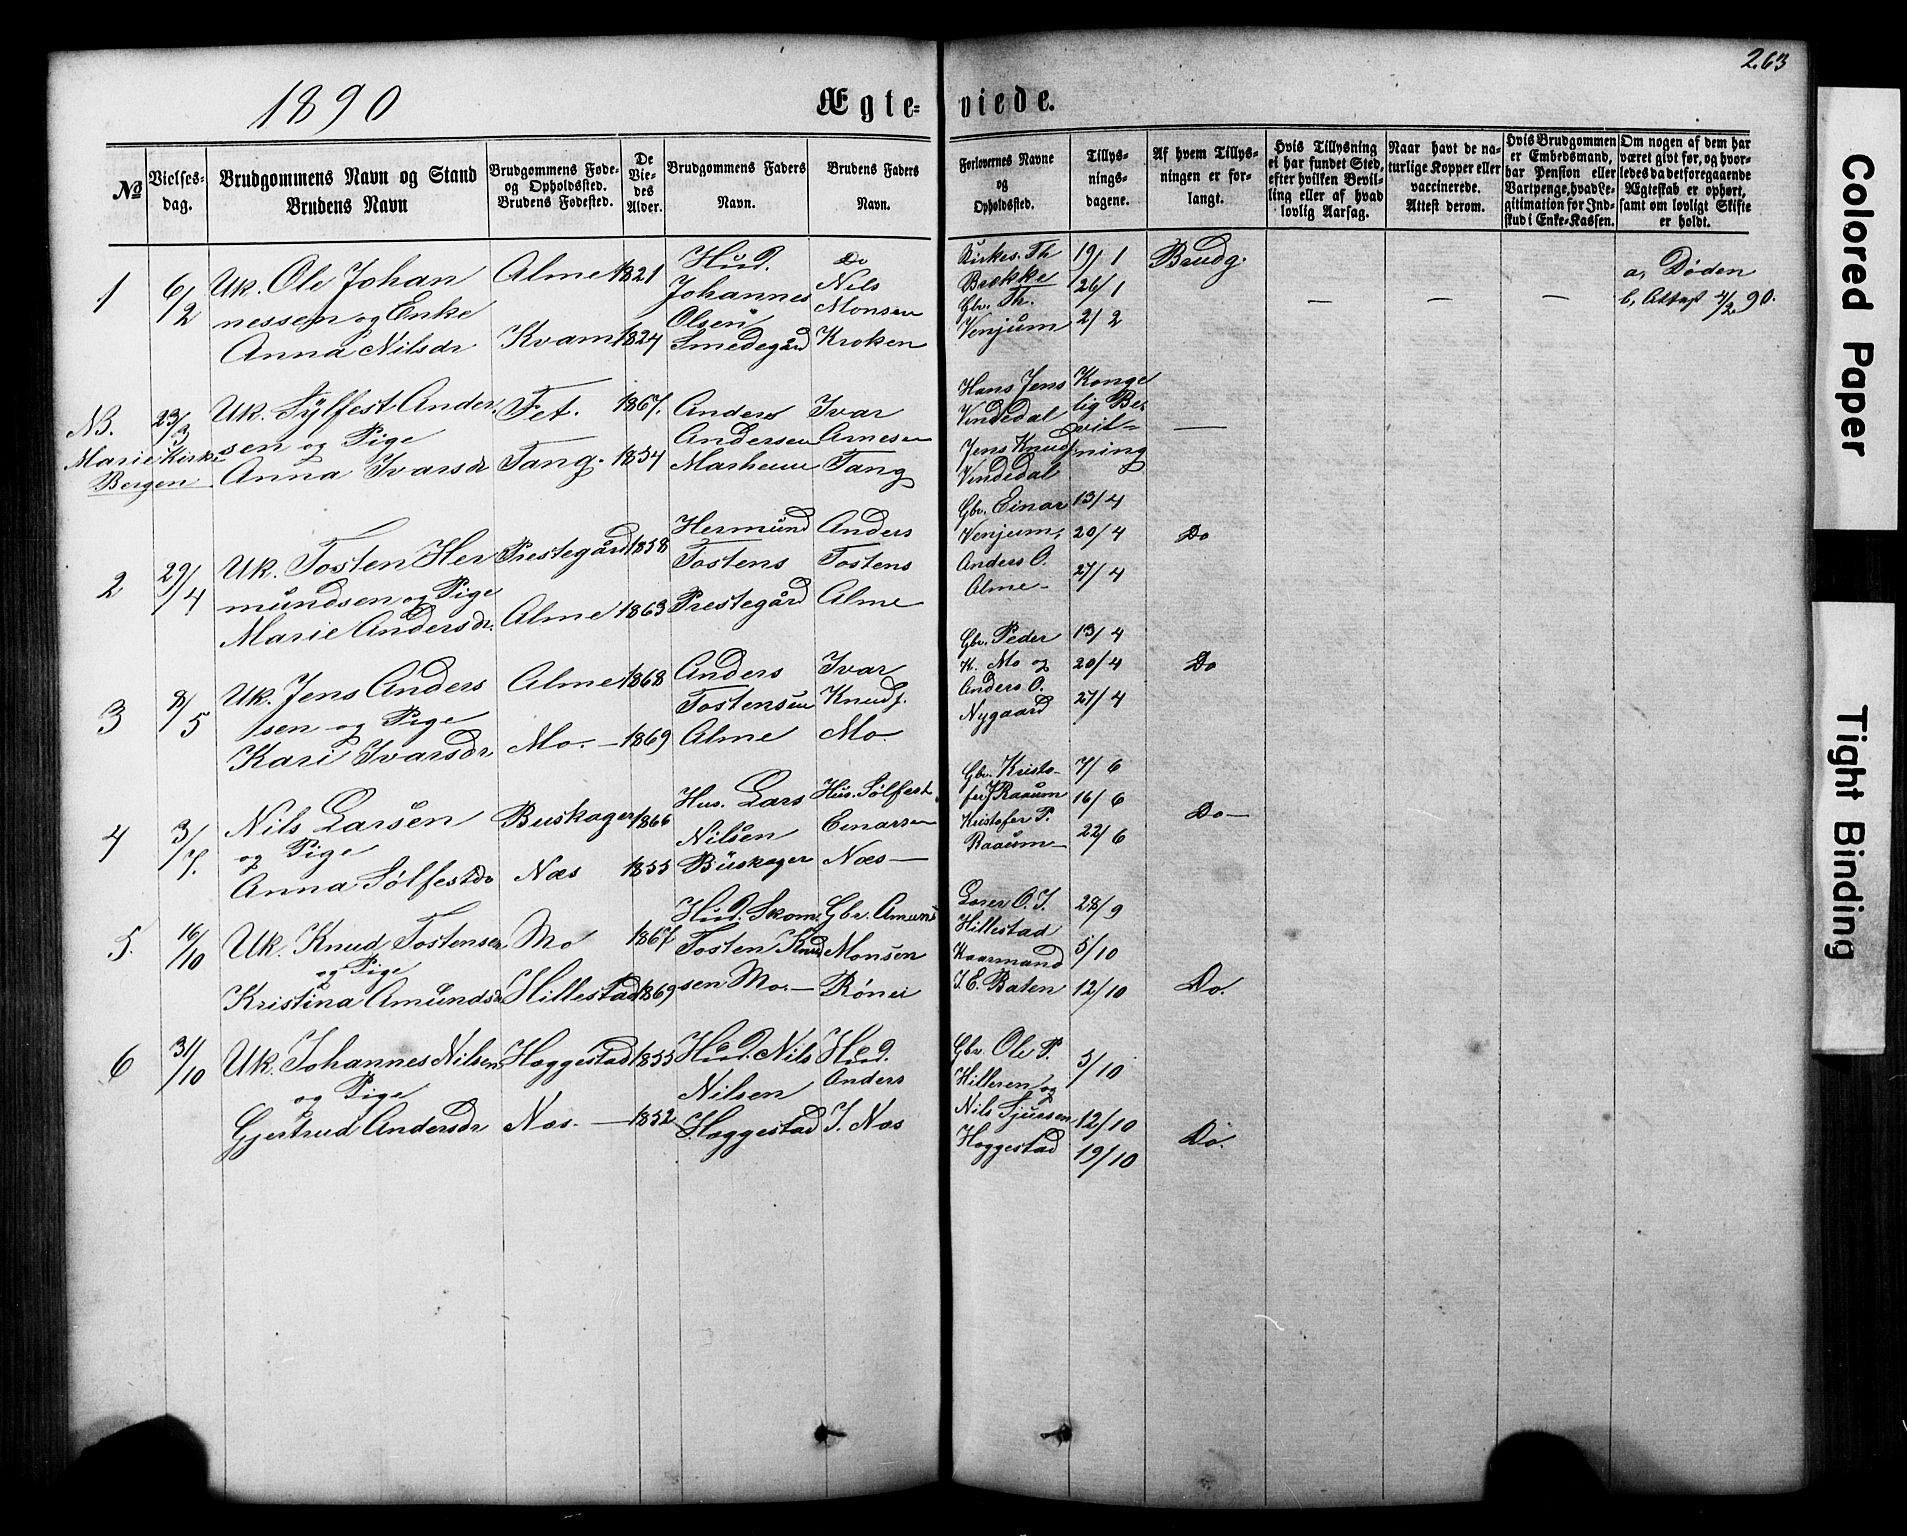 263
1890
Ægte-viede.
№
Vielses-
dag.
Brudgommens Navn og Stand
Brudens Navn
Brudgommens Føde-
og Opholdssted.
Brudens Fødested.
De
Vie-
des
Alder.
Brudgommens Faders
Navn.
Brudens Faders
Navn.
Forlovernes Navne
og
Opholdssted.
Tillys-
nings-
dagene.
Af hvem Tillys-
ningen er for-
langt.
Hvis Tillysning
ei har fundet Sted,
efter hvilken Bevil-
ling eller af hvad
lovlig Aarsag.
Naar havt de na-
turlige Kopper eller
vaccinerede.
Attest derom.
Hvis Brudgommen
er Embedsmand,
har Pension eller
Vartpenge, hvad Le-
gitimation for Ind-
skud i Enke-Kassen.
Om nogen af dem har
været givt før, og hvor-
ledes da det foregaaende
Ægteskab er ophørt,
samt om lovligt Skifte
er holdt.
1
6/2
Uk. Ole Johan
nessen og Enke
Anna Nilsdr
Alme
Kvam
1821
1824
Hud.
Johannes
Olsen
Smedegård
Do
Nils
Monsen
Kroken
Kirkes. Th
Brække
Gbr. Th.
Venjum
19/1
26/1
2/2
Brudg.
—
—
—
a, Døden
b, Attest 4/2 90.
NB.
Marie Kirke
Bergen
23/3
Uk. Sylfest Ander
sen og Pige
Anna Ivarsdr
Fet.
Tang.
1867.
1854
Anders
Andersen
Marheim
Ivar
Arnesen
Tang
Hans Jens
Vendedal
Jens Knud
Vendedal
Konge
lig Be
vil-
ning
—
2
29/4
Uk. Tosten Her
mundsen og Pige
Marie Andersdr.
Prestegård
Alme
1858
1863
Hermund
Tostens
Prestegård
Anders
Tostens
Alme
Gbr. Einar
Venjum,
Anders O.
Alme-
13/4
20/4
27/4
Do
3
8/5
Uk. Jens Anders
sen og Pige
Kari Ivarsdr
Alme
Mo. —
1868
1869
Anders
Tostensen
Alme
Ivar
Knuds.
Mo
Gbr. Peder
K. Mo og
Anders O.
Nygaard
13/4
20/4
27/4
Do
4
3/7.
Nils Larsen
og Pige
Anna Sølfestdr
Buskager
Næs
1866
1855
Hus. Lars
Nilsen
Buskager
Hus. Sølfest
Einarsen
Næs —
Gbr. Kristo-
fer J Raaum
Kristofer P.
Raaum —
7/6
16/6
22/6
Do —
5.
16/10
Uk. Knud Tostensen
og Pige
Kristina Amundsdr
Mo
Hillestad
1867
1869
Hud. Skom.
Tosten Knud
sen Mo. —
Gbr. Amund
Monsen
Rønei
O. I.
Hillestad
Kaarmand
I. E. Baten
28/9
5/10
12/10
Do.
6
31/10
Uk. Johannes Nilsen
og Pige
Gjertrud Andersdr
Hæggestad
Næs. —
1855
1852
Hud. Nils
Nilsen
Hæggestad
Hud.
Anders
I. Næs
Gbr. Ole P.
Hilleren og
Nils Sjurssen
Hæggestad
5/10
12/10
19/10
Do.
Colored Paper
Tight Binding